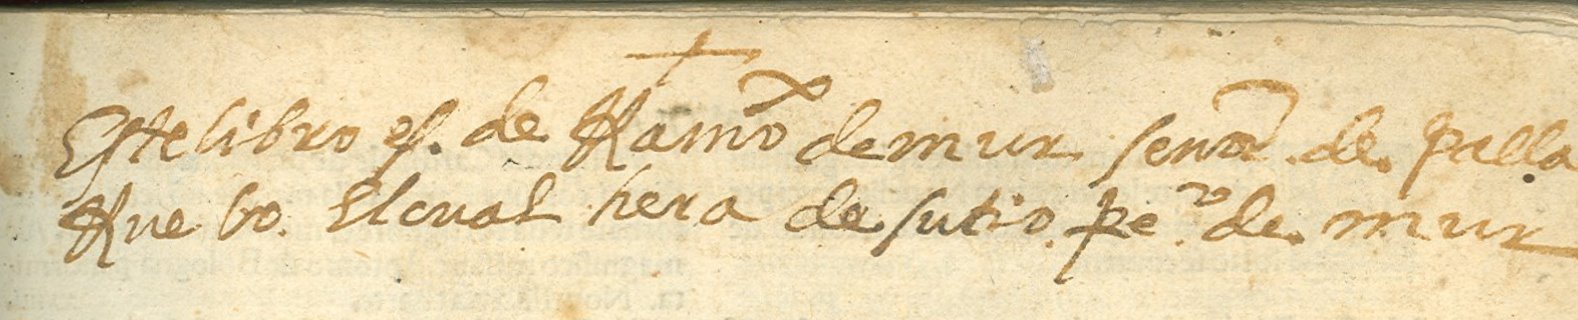 Este libro es. de Ramō de mur. señor. de. palla
Rue bo. El cual. hera de su tio. pe.º de. mur